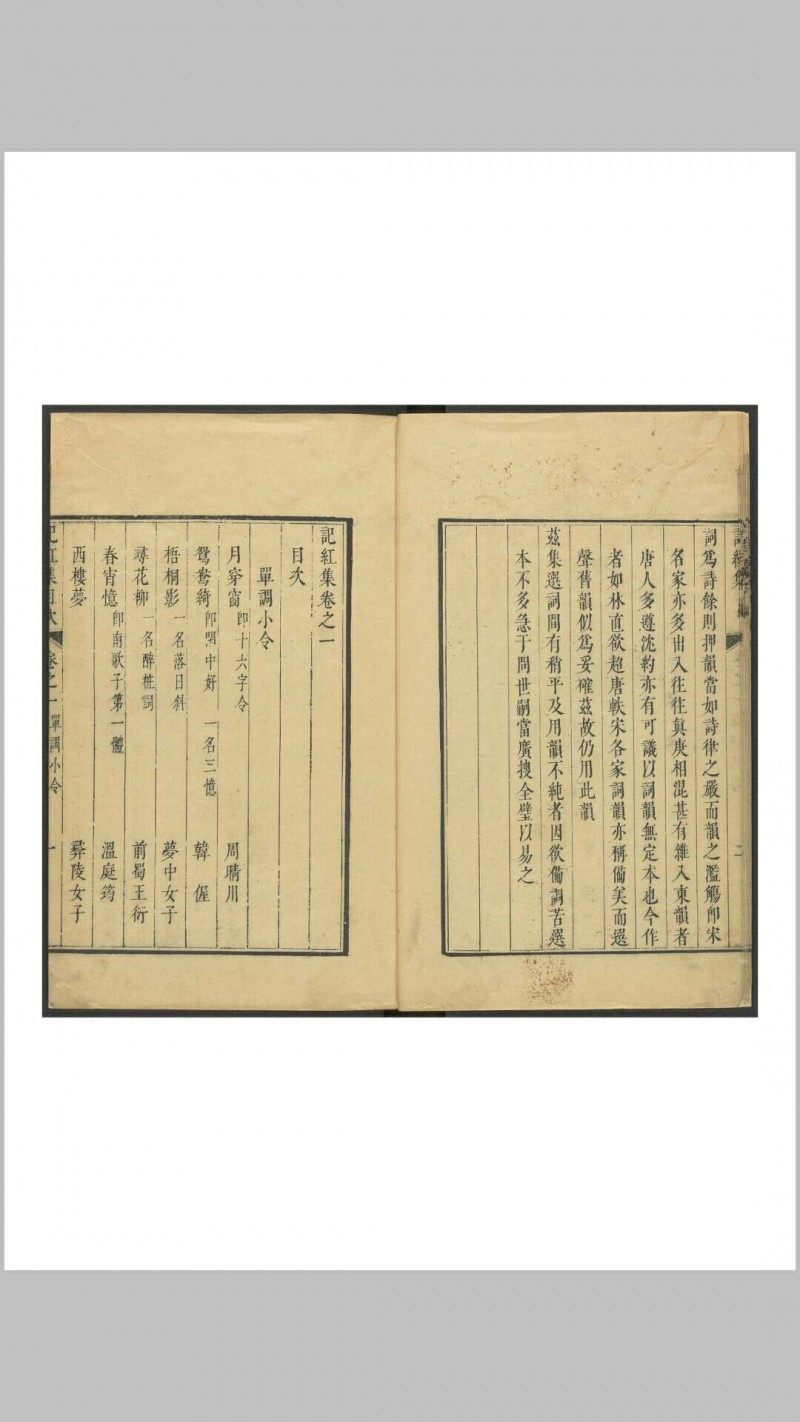 詞爲詩餘則押韻當如詩律之嚴而韻之濫觴即宋
名家亦多出入往往真庚相混甚有雜入東韻者
唐人多遵沈約亦有可議以詞韻無定本也今作
者如林直欲超唐軼宋各家詞韻亦稱備美而選
聲舊韻似爲妥確茲故仍用此韻
茲集選詞間有稍平及用韻不純者因欲備調苦選
本不多急于問世嗣當廣搜全璧以易之
二
記紅集卷之一
目次
單調小令
月穿窗 即十六字令 周晴川
鴛鴦綺 即閒中好 一名三憶 韓偓
梧桐影 一名落日斜 夢中女子
尋花柳 一名醉粧詞 前蜀王衍
春宵憶 即南歌子第一體 溫庭筠
西樓夢 彝陵女子
記紅集目次 卷之一 單調小令 一